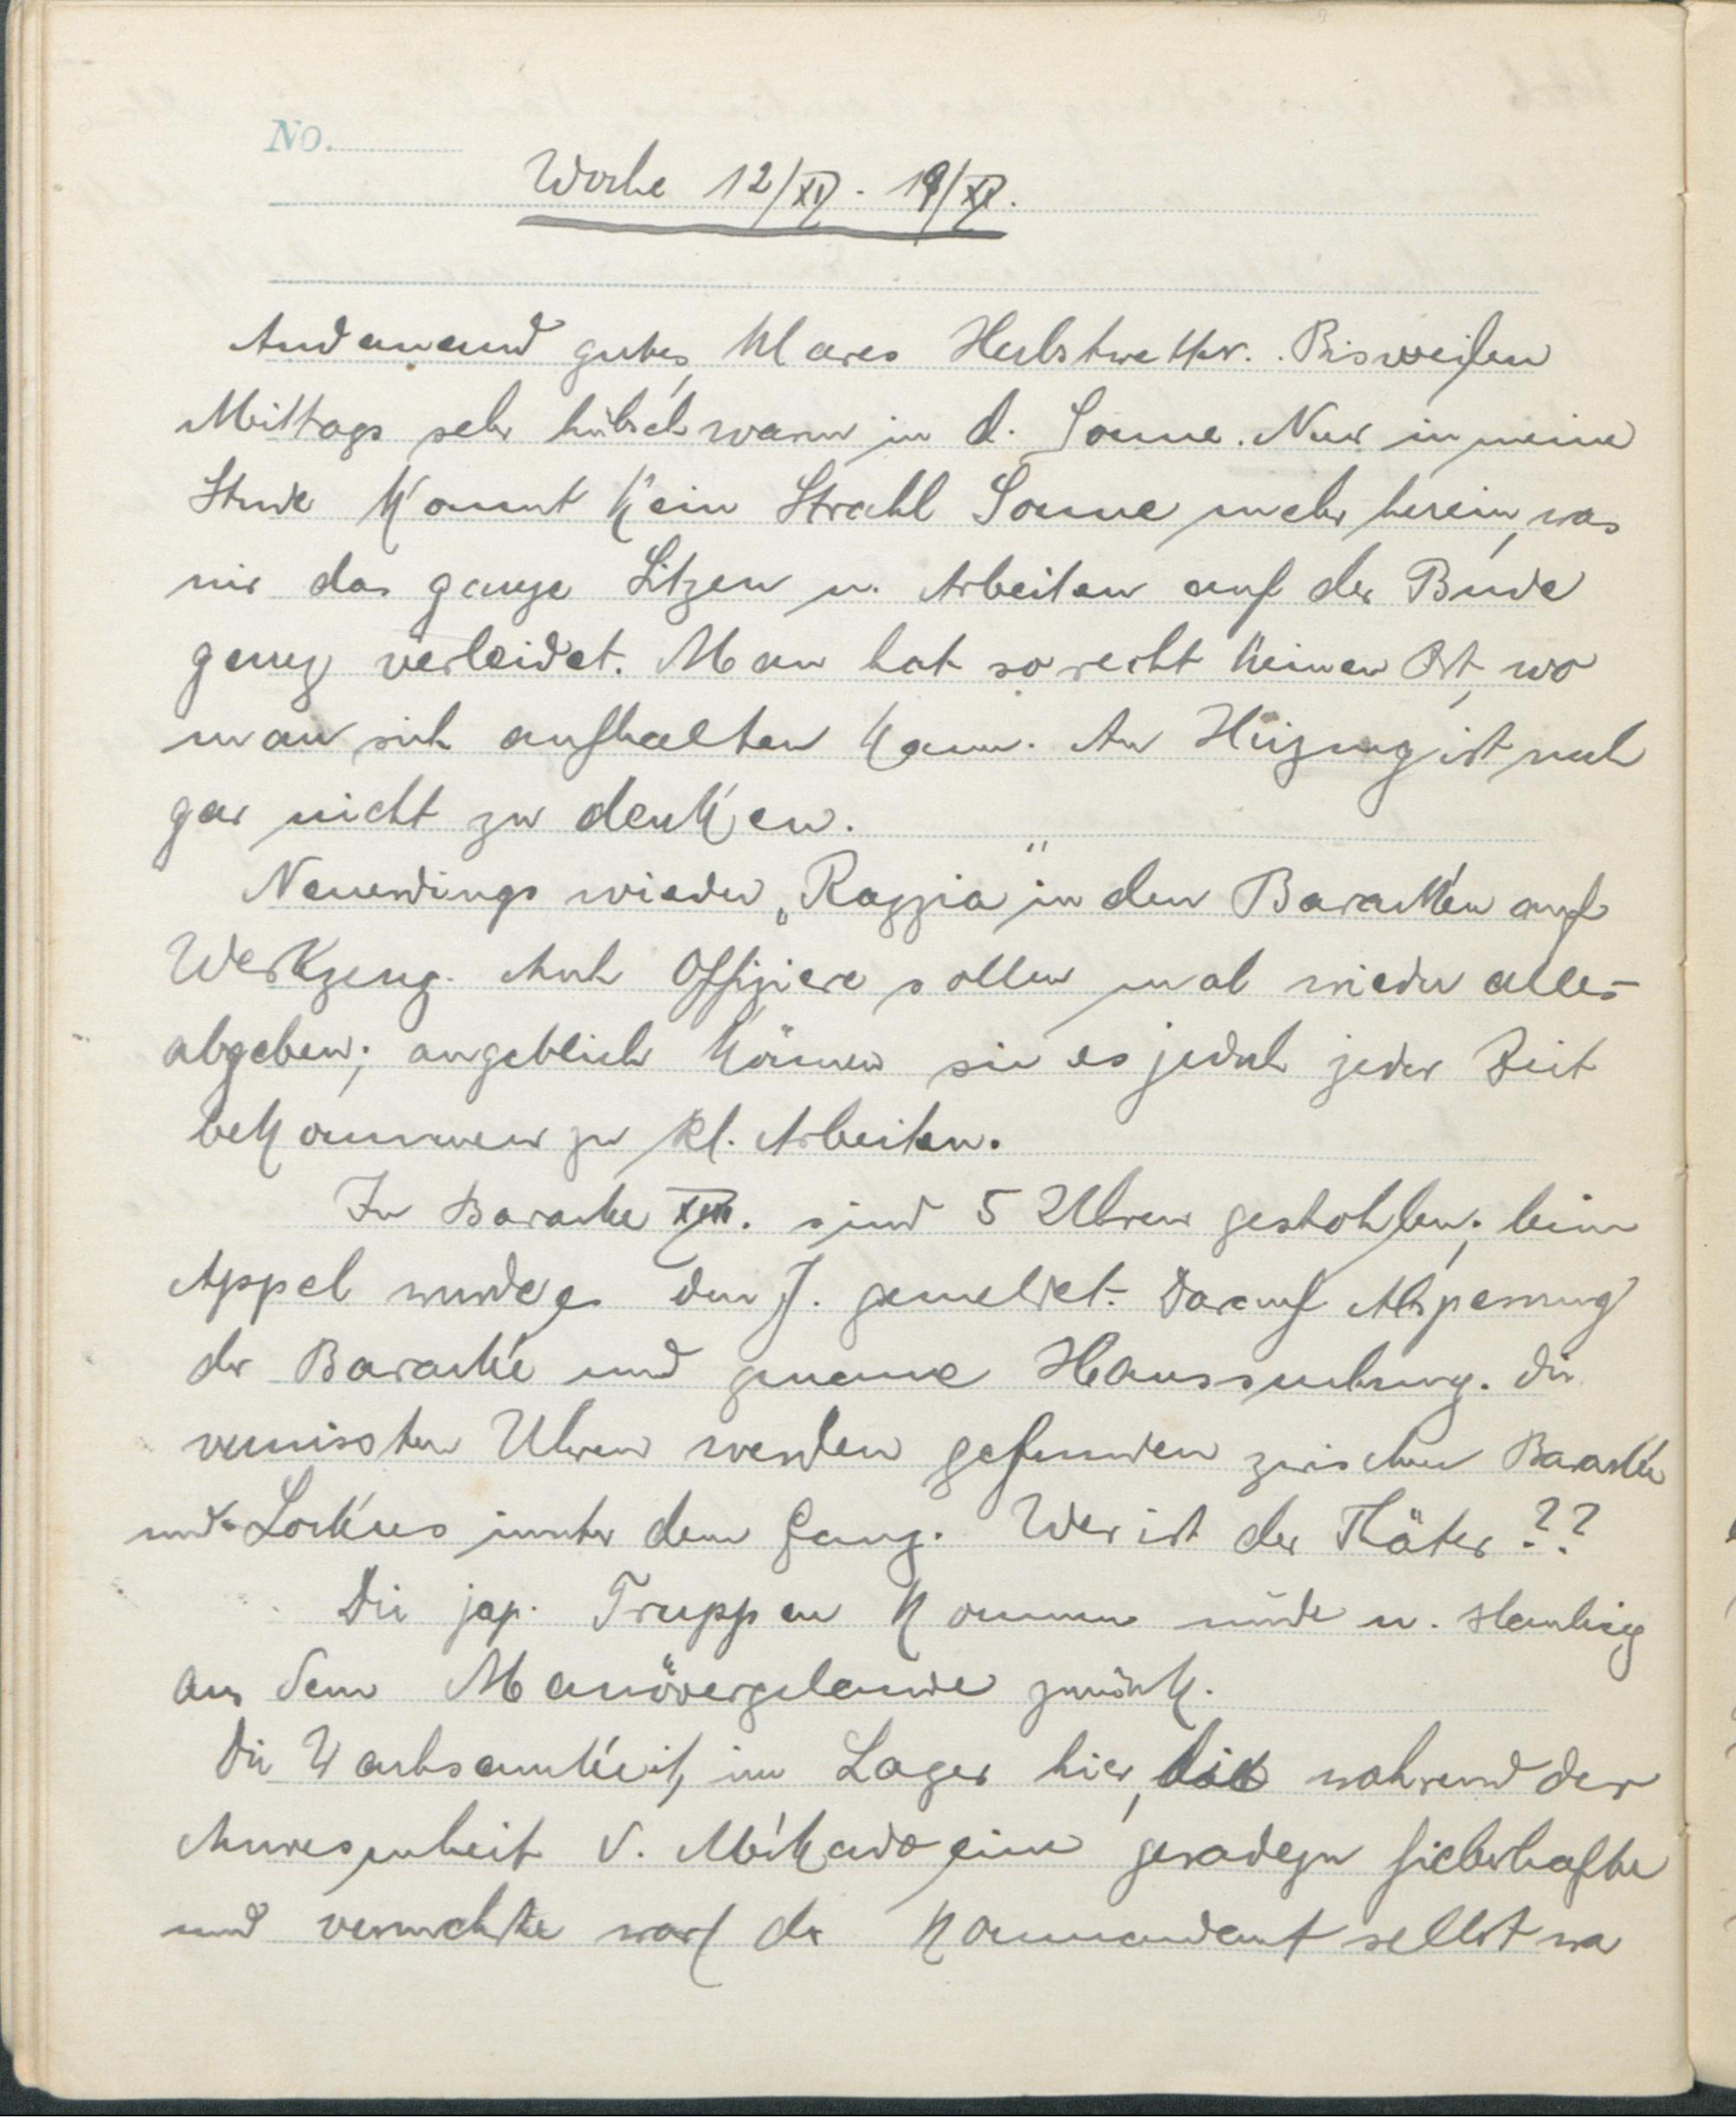 No.
Woche 12/XI. - 19/XI.
Andauernd gutes, klares Herbstwetter. Bisweilen
Mittags sehr hübsch warm in d. Sonne. Nur in meine
Stube kommt kein Strahl Sonne mehr herein, was
mir das ganze Sitzen u. Arbeiten auf der Bude
ganz verleidet. Man hat so recht keinen Ort, wo
man sich aufhalten kann. An Heizung ist noch
gar nicht zu denken.
Neuerdings wieder „Razzia" in den Baracken auf
Werkzeug. Auch Offiziere sollen mal wieder alles
abgeben; angeblich können sie es jedoch jeder Zeit
bekommen zu kl. Arbeiten.
In Baracke sind 5 Uhren gestohlen; beim
Appel wurde es den J. gemeldet. Darauf Absperrung
der Baracke und genaue Haussuchung. Die
vermissten Uhren werden gefunden zwischen Baracke
und Lockus unter dem Gang. Wer ist der Thäter??
Die jap. Truppen kommen müde u. staubig
aus dem Manövergelände zurück.
Die Wachsamkeit im Lager hier, während der
Anwesenheit d. Mikado eine geradezu fieberhafte
und vermehrte war der Kommandant selbst wa